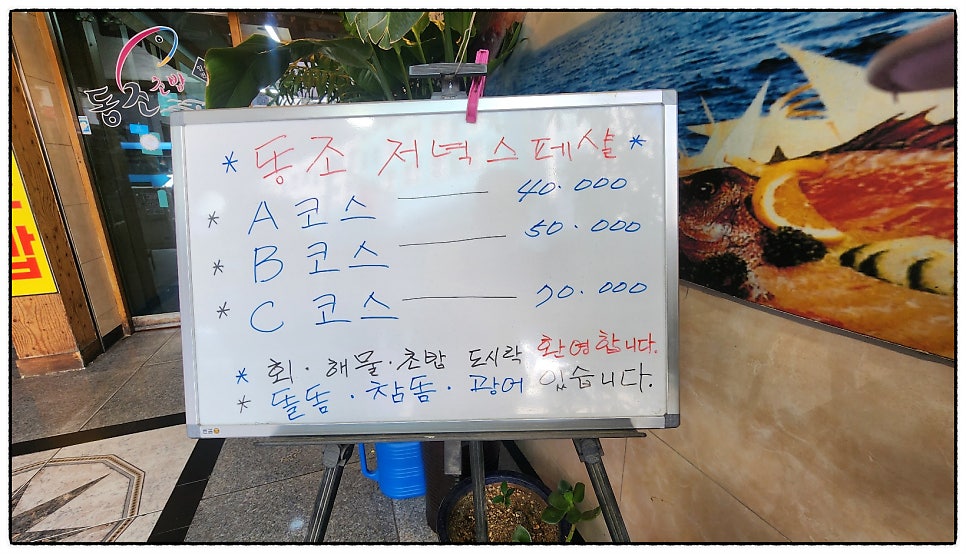 동조
초밥
* 동조 저녁 스페샬 *
* A 코스 — 40.000
* B 코스 — 50.000
* C 코스 — 70.000
* 회 · 해물 · 초밥 도시락 환영합니다.
* 돌돔 · 참돔 · 광어 있습니다.
밥